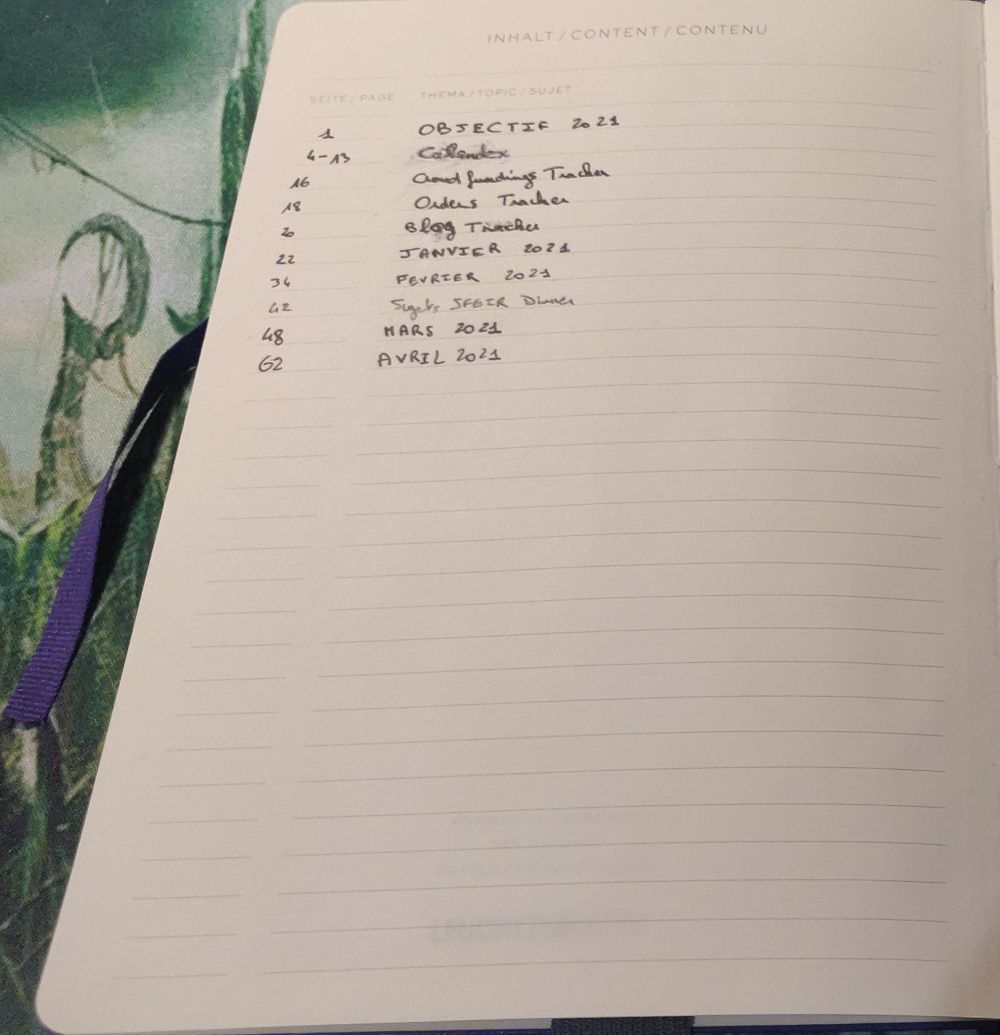 INHALT / CONTENT / CONTENU
SEITE / PAGE THEMA / TOPIC / SUJET
1 OBJECTIF 2021
4-13 Calendex
16 Crowdfundings Tracker
18 Orders Tracker
20 Blog Tracker
22 JANVIER 2021
34 FEVRIER 2021
42 Sujets SFEIR Dinner
48 MARS 2021
62 AVRIL 2021